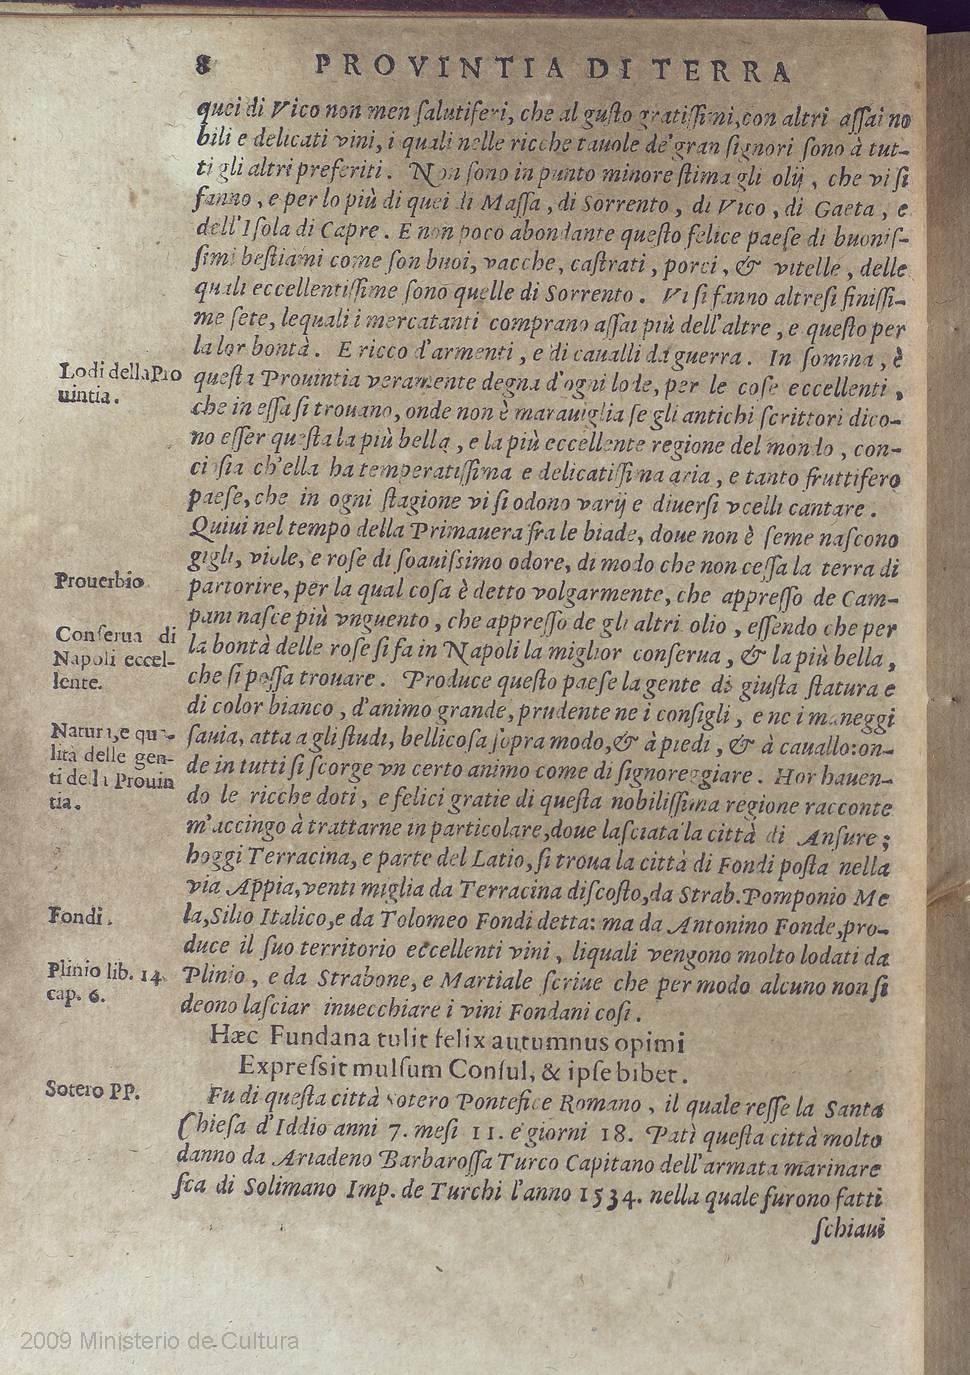 8 PROVINTIA DI TERRA
quei di Vico non men ſalutiferi, che al guſto gratiſſimi, con altri aſſai no
bili e delicati vini, i quali nelle ricche tauole de' gran ſignori ſono à tut-
ti gli altri preferiti. Non ſono in punto minore ſtima gli olij, che vi ſi
fanno, e per lo più di quei di Maſſa, di Sorrento, di Vico, di Gaeta, e
dell'Iſola di Capre. E non poco abondante queſto felice paeſe di buoniſ-
ſimi beſtiami come ſon buoi, vacche, caſtrati, porci, & vitelle, delle
quali eccellentiſſime ſono quelle di Sorrento. Vi ſi fanno altreſi finiſſi-
me ſete, lequali i mercatanti comprano aſſai più dell'altre, e queſto per
la lor bontà. E ricco d'armenti, e di caualli da guerra. In ſomma, è
Lodi della Pro
uintia.
queſta Prouintia veramente degna d'ogni lode, per le coſe eccellenti,
che in eſſa ſi trouano, onde non è marauiglia ſe gli antichi ſcrittori dico-
no eſſer queſta la più bella, e la più eccellente regione del mondo, con-
cioſia ch'ella ha temperatiſſima e delicatiſſima aria, e tanto fruttifero
paeſe, che in ogni ſtagione vi ſi odono varij e diuerſi vcelli cantare.
Quiui nel tempo della Primauera fra le biade, doue non è ſeme naſcono
gigli, viole, e roſe di ſoauiſsimo odore, di modo che non ceſſa la terra di
Prouerbio
partorire, per la qual coſa è detto volgarmente, che appreſſo de Cam-
pani naſce più vnguento, che appreſſo de gli altri olio, eſſendo che per
Conſerua di
Napoli eccel-
lente.
la bontà delle roſe ſi fa in Napoli la miglior conſerua, & la più bella,
che ſi poſſa trouare. Produce queſto paeſe la gente di giuſta ſtatura e
di color bianco, d'animo grande, prudente ne i conſigli, e ne i maneggi
Natura, e qua-
lità delle gen-
ti della Prouin
tia.
ſauia, atta a gli ſtudi, bellicoſa ſopra modo, & à piedi, & à cauallo: on-
de in tutti ſi ſcorge vn certo animo come di ſignoreggiare. Hor hauen-
do le ricche doti, e felici gratie di queſta nobiliſſima regione racconte
m'accingo à trattarne in particolare, doue laſciata la città di Anſure;
hoggi Terracina, e parte del Latio, ſi troua la città di Fondi poſta nella
via Appia, venti miglia da Terracina diſcoſto, da Strab. Pomponio Me
Fondi.
la, Silio Italico, e da Tolomeo Fondi detta: ma da Antonino Fonde, pro-
duce il ſuo territorio eccellenti vini, liquali vengono molto lodati da
Plinio lib. 14.
cap. 6.
Plinio, e da Strabone, e Martiale ſcriue che per modo alcuno non ſi
deono laſciar inuecchiare i vini Fondani coſi.
Hæc Fundana tulit felix autumnus opimi
Expreſsit mulſum Conſul, & ipſe bibet.
Sotero PP.
Fu di queſta città Sotero Pontefice Romano, il quale reſſe la Santa
Chieſa d'Iddio anni 7. meſi 11. e giorni 18. Patì queſta città molto
danno da Ariadeno Barbaroſſa Turco Capitano dell'armata marinare
ſca di Solimano Imp. de Turchi l'anno 1534. nella quale furono fatti
ſchiaui
2009 Ministerio de Cultura